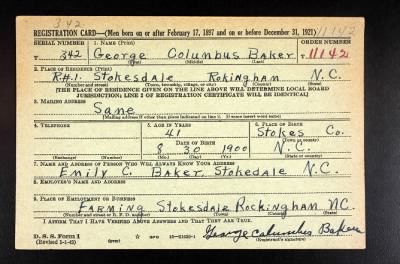 342
REGISTRATION CARD—(Men born on or after February 17, 1897 and on or before December 31, 1921)
SERIAL NUMBER 1. NAME (Print) ORDER NUMBER
T 342 George Columbus Baker T 11142
(First) (Middle) (Last)
2. PLACE OF RESIDENCE (Print)
R#1. Stokesdale Rokingham N.C.
(Number and street) (Town, township, village, or city) (County) (State)
[THE PLACE OF RESIDENCE GIVEN ON THE LINE ABOVE WILL DETERMINE LOCAL BOARD
JURISDICTION; LINE 2 OF REGISTRATION CERTIFICATE WILL BE IDENTICAL]
3. MAILING ADDRESS
Same
[Mailing address if other than place indicated on line 2. If same insert word same]
4. TELEPHONE 5. AGE IN YEARS 6. PLACE OF BIRTH
41 Stokes Co.
DATE OF BIRTH (Town or county)
8 30 1900 N.C.
(Exchange) (Number) (Mo.) (Day) (Yr.) (State or country)
7. NAME AND ADDRESS OF PERSON WHO WILL ALWAYS KNOW YOUR ADDRESS
Emily C. Baker. Stokedale N.C.
8. EMPLOYER'S NAME AND ADDRESS
9. PLACE OF EMPLOYMENT OR BUSINESS
Farming Stokesdale Rockingham N.C.
(Number and street or R. F. D. number) (Town) (County) (State)
I AFFIRM THAT I HAVE VERIFIED ABOVE ANSWERS AND THAT THEY ARE TRUE.
D. S. S. Form 1
(Revised 1-1-42) (over) GPO 16—21630-1 George Columbus Baker
(Registrant's signature)